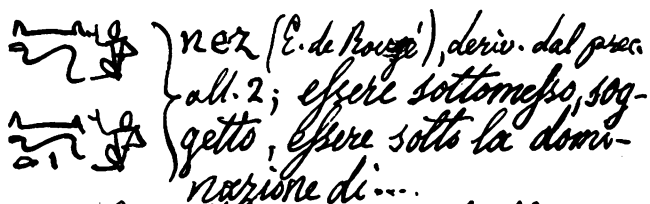 nez (E. de Rougé), deriv. dal prec.
all. 2; essere sottomesso, sog-
getto, essere sotto la domi-
nazione di....